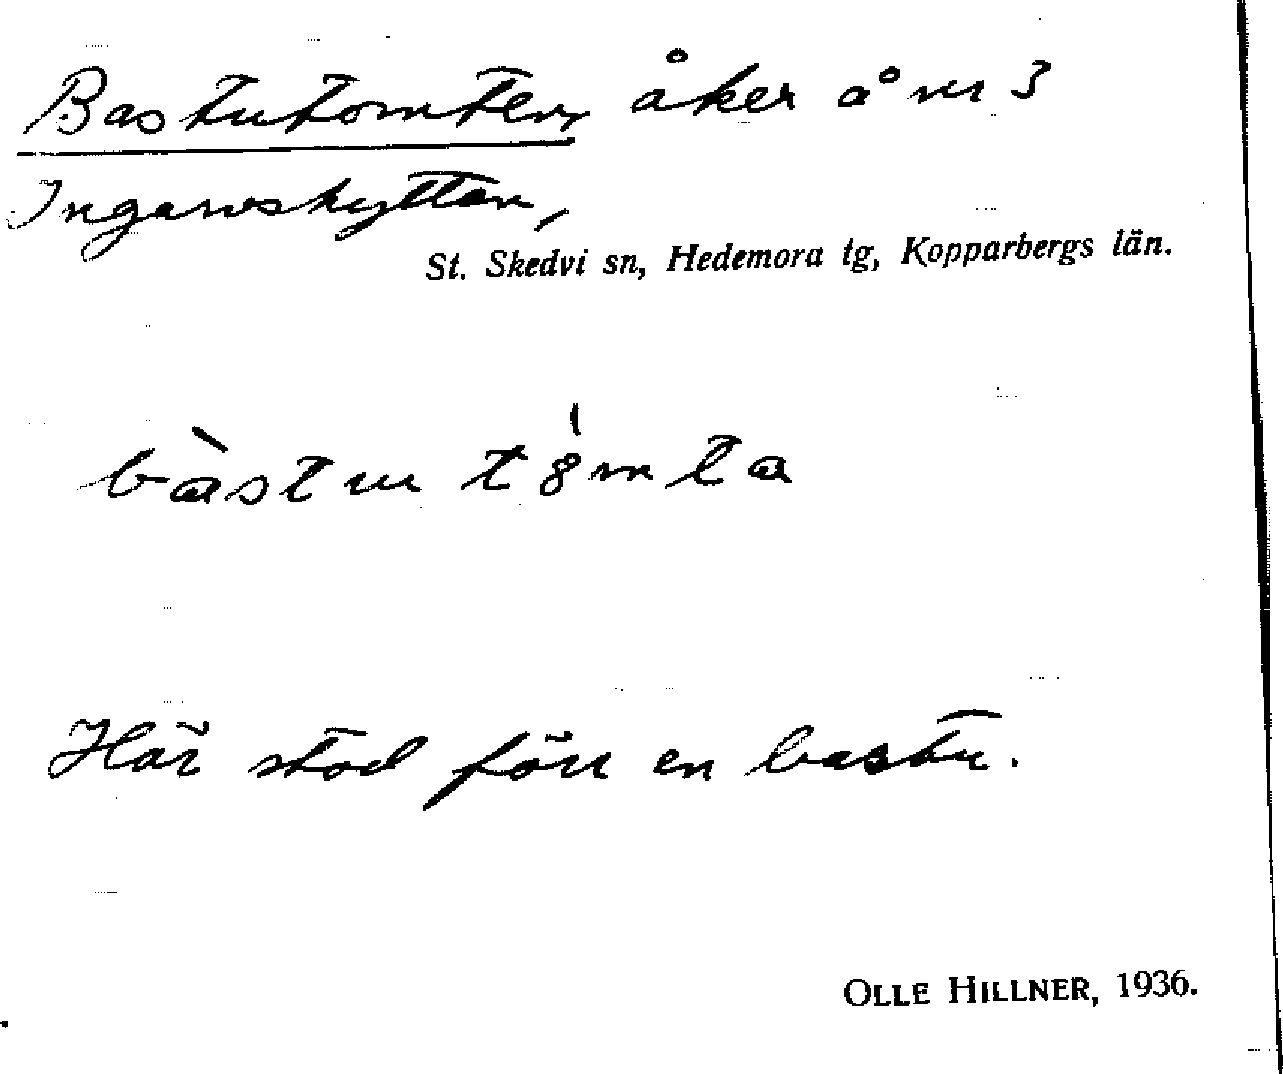 Bastutomten åker å nr 3
Ingarvshyttan,
St. Skedvi sn, Hedemora tg, Kopparbergs län.
bàstu tȣ́mta
Här stod förr en bastu.
OLLE HILLNER, 1936.